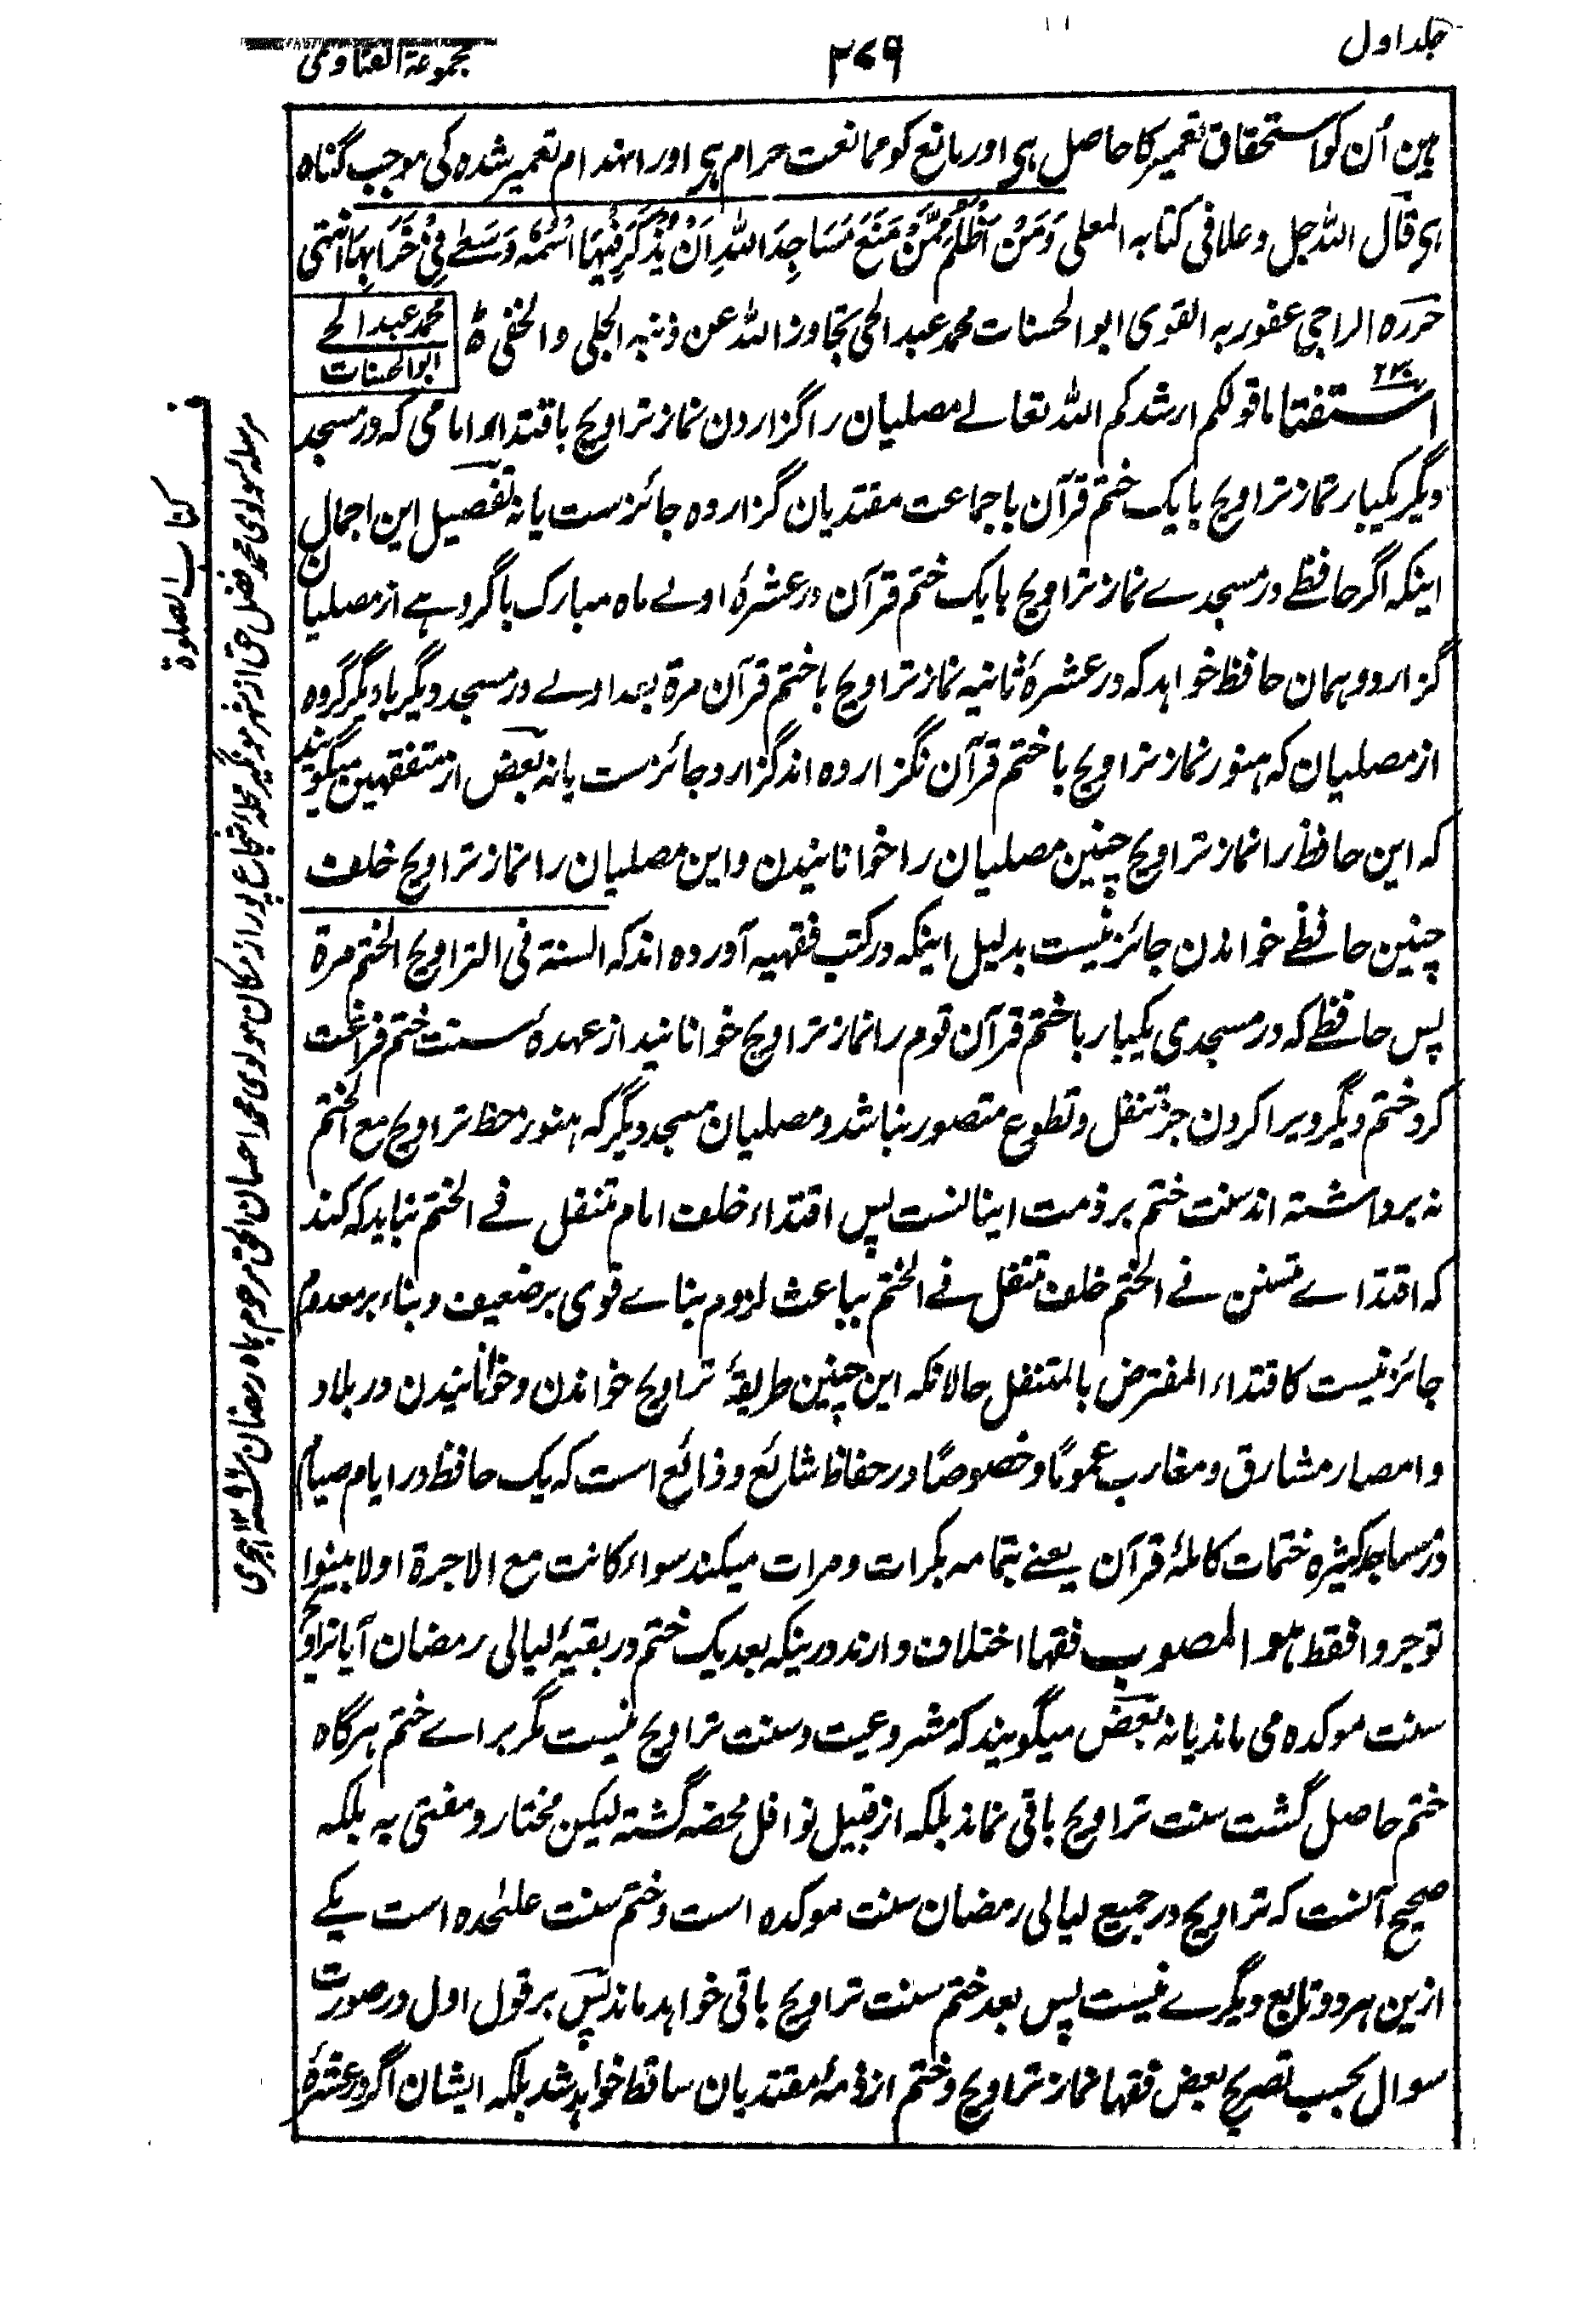 جلد اول
۲۷۹
مجموعۃ الفتاوی
ہین اُن کو استحقاق تعمیر کا حاصل ہی اور مانع کو ممانعت حرام ہی اور انہدام تعمیر شدہ کی موجب گناہ
ہی قال اللہ جل وعلا فی کتابہ المعلی وَمَنْ اَظْلَمُ مِمَّنْ مَنَعَ مَسَاجِدَ اللّٰہِ اَنْ یُّذْکَرَ فِیْہَا اسْمُہٗ وَسَعٰے فِیْ خَرَابِہَا انتہی
حررہ الراجی عفو ربہ القوی ابو الحسنات محمد عبد الحی تجاوز اللہ عن ذنبہ الجلی والخفی
محمد عبد الحے
ابو الحسنات
استفتا ما قولکم ارشدکم اللہ تعالے مصلیان را گزاردن نماز تراویح باقتداء امامی کہ در مسجد
دیگر یکبار نماز تراویح بایک ختم قرآن باجماعت مقتدیان گزاردہ جائزست یا نہ تفصیل این اجمال
اینکہ اگر حافظے در مسجدے نماز تراویح بایک ختم قرآن در عشرۂ اولے ماہ مبارک باگروہے از مصلیان
گزارد و ہمان حافظ خواہد کہ در عشرۂ ثانیہ نماز تراویح با ختم قرآن مرۃ بعد اولے در مسجد دیگر با دیگر گروہ
از مصلیان کہ ہنوز نماز تراویح با ختم قرآن نگزاردہ اند گزارد جائزست یا نہ بعض از متفقہین میگویند
کہ این حافظ را نماز تراویح چنین مصلیان را خوانانیدن و این مصلیان را نماز تراویح خلف
چنین حافظے خواندن جائز نیست بدلیل اینکہ در کتب فقہیہ آوردہ اند کہ السنۃ فی التراویح الختم مرۃ
پس حافظے کہ در مسجدی یکبار با ختم قرآن قوم را نماز تراویح خوانانید از عہدۂ سنت ختم فراغت
کرد ختم دیگر ویرا کردن جز تنفل و تطوع متصور نباشد و مصلیان مسجد دیگر کہ ہنوز حظ تراویح مع الختم
نہ برداشتہ اند سنت ختم بر ذمت اینانست پس اقتداء خلف امام متنفل فے الختم نباید کہ کنند
کہ اقتداے متسنن فے الختم خلف متنفل فے الختم بباعث لزوم بناے قوی بر ضعیف و بناء بر معدوم
جائز نیست کاقتداء المفترض بالمتنفل حالانکہ این چنین طریقۂ تراویح خواندن و خوانانیدن در بلاد
و امصار مشارق و مغارب عموماً و خصوصاً در حفاظ شائع و ذائع است کہ یک حافظ در ایام صیام
در مساجد کثیرہ ختمات کاملۂ قرآن یعنے بتمامہ بکرات و مرات میکند سواء کانت مع الاجرۃ او لا بینوا
توجروا فقط ہو المصوب فقہا اختلاف دارند درینکہ بعد یک ختم در بقیۂ لیالی رمضان آیا تراویح
سنت موکدہ می ماند یا نہ بعض میگویند کہ مشروعیت و سنت تراویح نیست مگر براے ختم ہر گاہ
ختم حاصل گشت سنت تراویح باقی نماند بلکہ از قبیل نوافل محضہ گشتہ لیکن مختار و مفتی بہ بلکہ
صحیح آنست کہ تراویح در جمیع لیالی رمضان سنت موکدہ است و ختم سنت علٰحدہ است یکے
ازین ہر دو تابع دیگرے نیست پس بعد ختم سنت تراویح باقی خواہد ماند پس بر قول اول در صورت
سوال بحسب تصریح بعض فقہا نماز تراویح و ختم از ذمۂ مقتدیان ساقط خواہد شد بلکہ ایشان اگر در عشرۂ
کتاب الصلوۃ
مرسلہ مولوی محمد فضل حق از شہر مونگیر محلہ شجاع پور از مکان مولوی محمد احسان الحق مرحوم ماہ رمضان ہجری